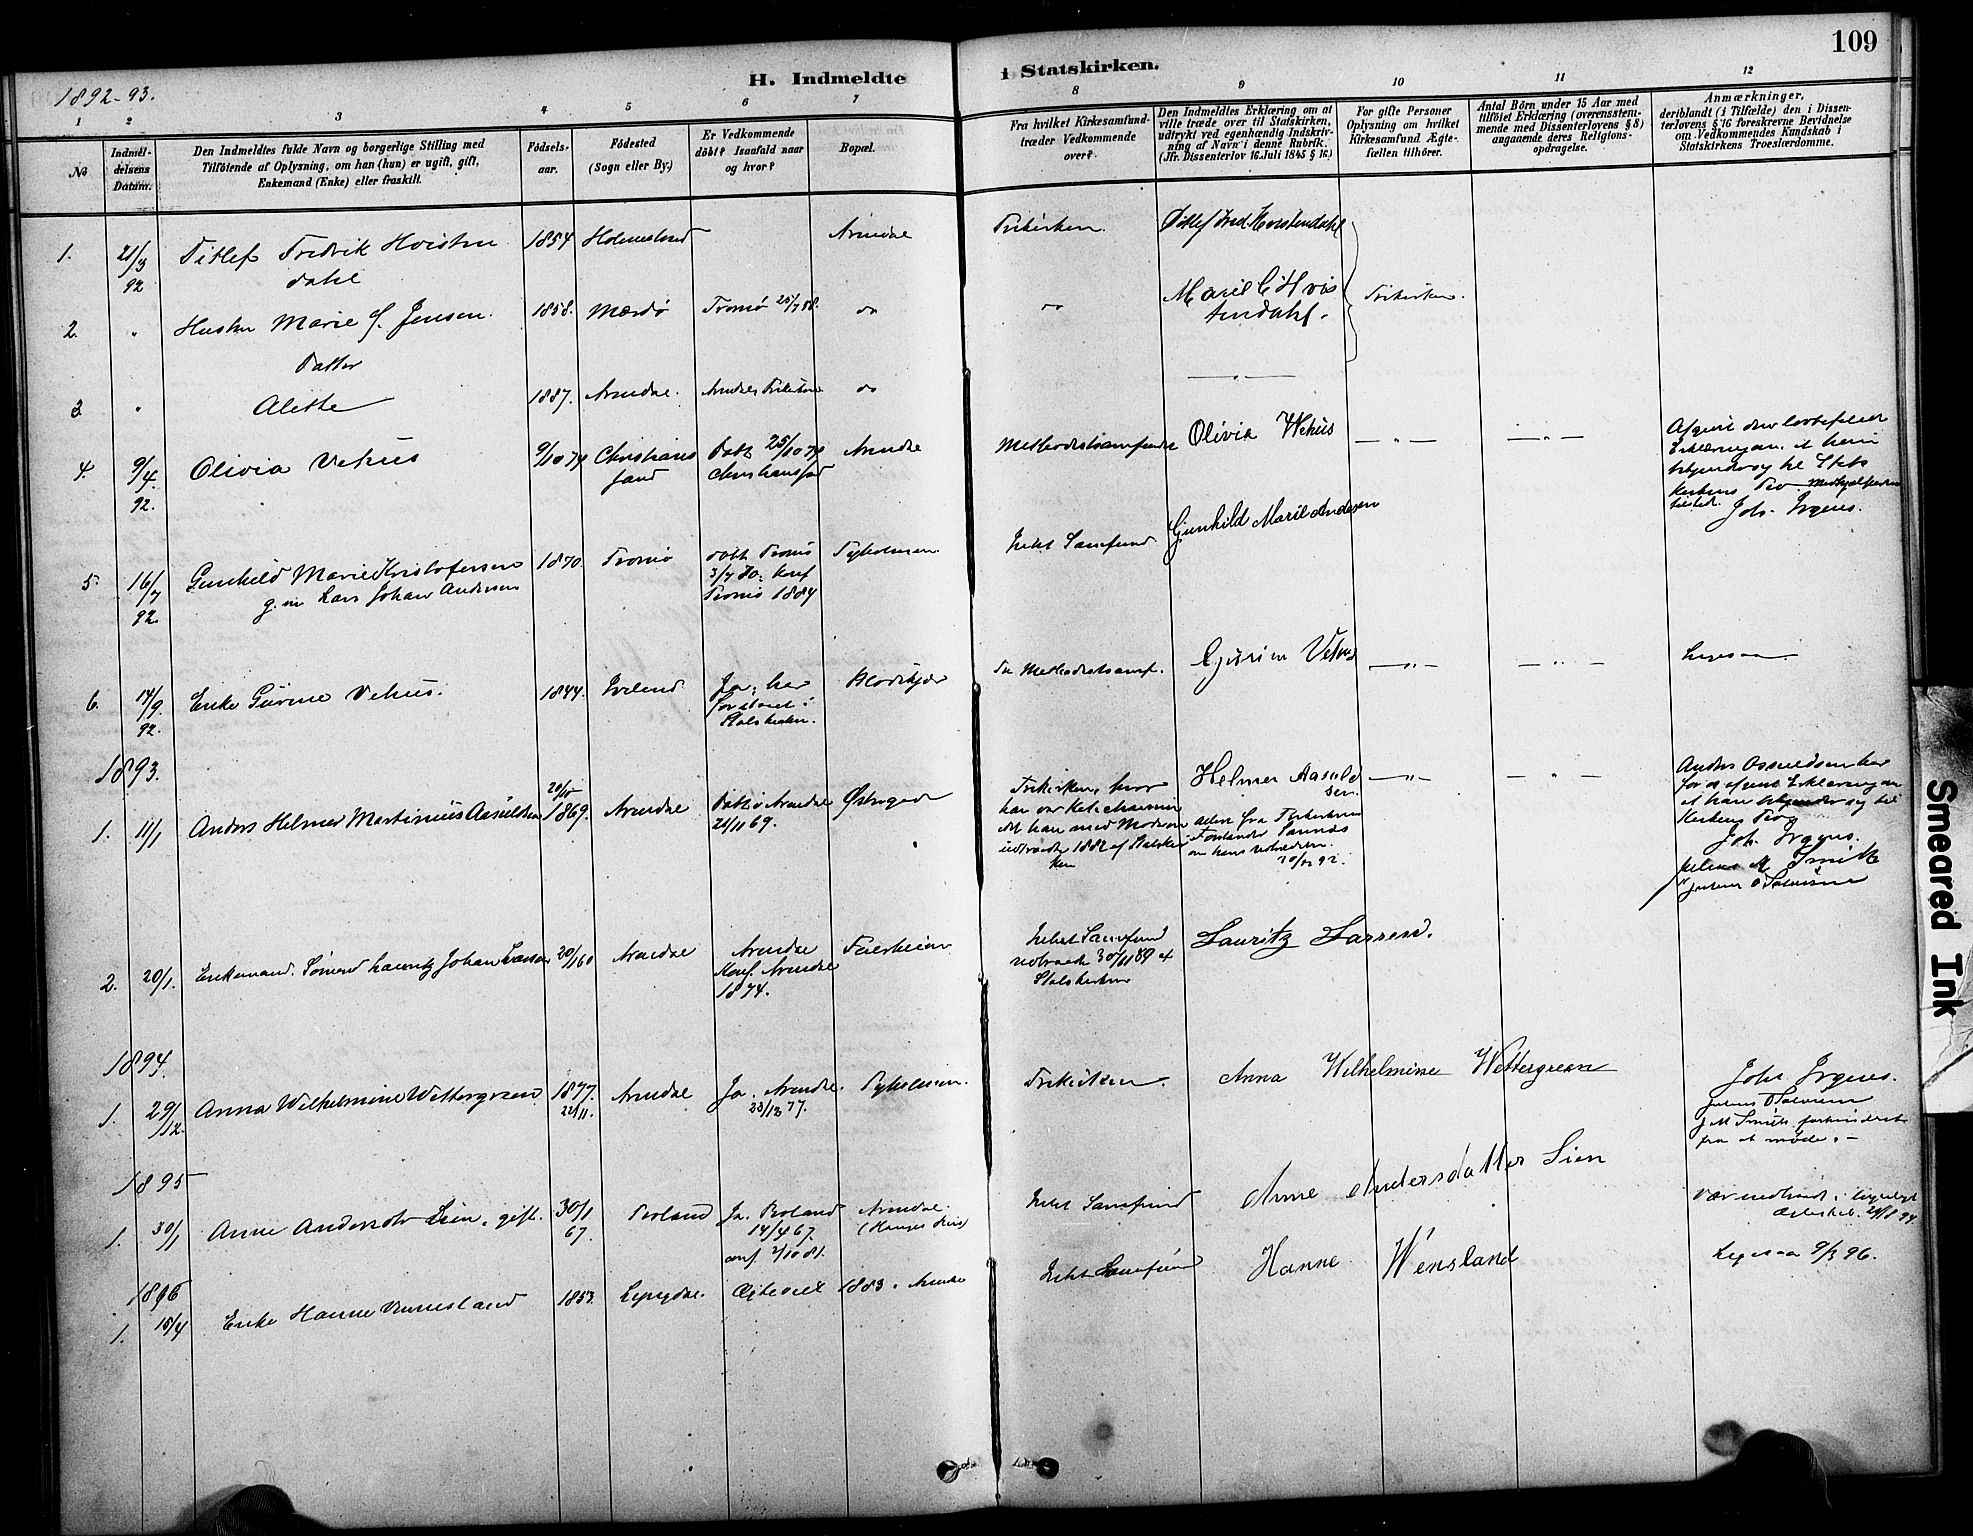 109
1892-93.
H. Indmeldte
i Statskirken.
1 2 3 4 5 6 7
8 9 10 11 12
No
Indmel-
delsens
Datum.
Den Indmeldtes fulde Navn og borgerlige Stilling med
Tilföiende af Oplysning, om han (hun) er ugift, gift,
Enkemand (Enke) eller fraskilt.
Födsels-
aar.
Födested
(Sogn eller By.)
Er Vedkommende
döbt? Isaafald naar
og hvor?
Bopæl.
Fra hvilket Kirkesamfund
træder Vedkommende
over?
Den Indmeldtes Erklæring om at
ville træde over til Statskirken,
udtrykt ved egenhændig Indskriv-
ning af Navn i denne Rubrik.
(Jfr. Dissenterlov 16. Juli 1845 § 16.)
For gifte Personer
Oplysning om hvilket
Kirkesamfund Ægte-
fællen tilhörer.
Antal Börn under 15 Aar med
tilföiet Erklæring (overensstem-
mende med Dissenterlovens § 8)
angaaende deres Religions-
opdragelse.
Anmærkninger,
deriblandt (i Tilfælde) den i Dissen-
terlovens § 16 foreskrevne Bevidnelse
om Vedkommendes Kundskab i
Statskirkens Troeslærdomme.
1. 21/3 92 Ditlef Fredrik Hvisten
dahl
1854 Holmestrand Arendal
Frikirken Ditlef Fred. Hvistendahl
2. " Hustru Marie C. Jensen 1858. Mærdø Tromø do
do Marie C Hvis
tendahl. Frikirken.
Datter
3 " Alette 1887. Arendal. Arendals Frikirke do
4. 9/4 92. Olivia Vehus 9/10 79 Christians
sand
Døbt 25/10 79
Christianssand
Arendal
Methodistsamfundet Olivia Wehus
Joh. Irgens.
5. 16/7 92. Gunhild Marie Kristofersen
g. m Lars Johan Andersen
1870 Tromø
døbt Tromø
3/7 70; konf
Tromø 1884
Tyholmen
Intet Samfund Gjunhild Marie Andersen
6. 14/9 92. Enke Gurine Vehus. 1844. Iveland
Ja; har
før staaet i
Statskirken.
Blødekjær
Methodistsamf. Gjurine Vehus
Ligesaa
1893.
1. 11/1 Anders Helmer Martinius Aasuldsen 1869. Arendal
Døbt i Arendal
21/11 69.
Østregade
Frikirken, hvor
han var
at han med Moderen
udtraadte 1882 af Statskir
ken
Helmer Aasuld
sen.
Joh. Irgens.
Smith
2. 20/1. Enkemand. Sømand Lauritz Johan Larsen 20/1 60 Arendal
Arendal
Konf. Arendal
1874.
Feierheien
Intet Samfund
udtraadt 30/11 89 af
Statskirken
Lauritz Larsen.
1894.
1. 29/12. Anna Wilhelmine Wettergreen 1877.
22/11.
Arendal Ja. Arendal.
23/12 77.
Tyholmen.
Frikirken. Anna Wilhelmine Wettergreen
Joh Irgens.
J M Smith forhindret
fra at møde. -
1895
1. 30/1 Anne Andersdtr Lien, gift. 30/1
67.
Froland Ja. Froland
14/4 67.
conf. 2/10 81.
Arendal.
Intet Samfund Anne Andersdatter Lien
1896
1. 15/4 Enke Hanne Vennesland 1853. Lyngdal. 1883. Arendal
Intet Samfund Hanne Wensland
Ligesaa 9/3 96.
Smeared Ink